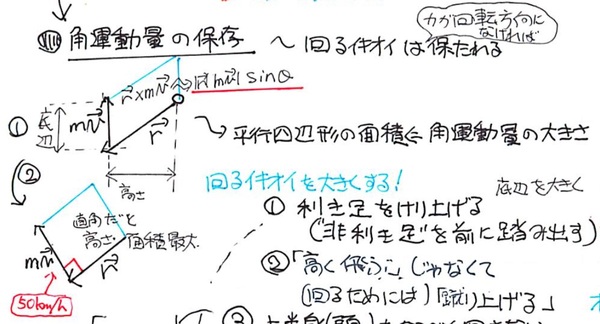 力が回転方向に
なければ
角運動量の保存 〜回るイキオイは保たれる
r×mv ⇒ |r||mv| sinθ
底辺 mv r
① 平行四辺形の面積 ⇐ 角運動量の大きさ
高さ
② 回るイキオイを大きくする! 底辺を大きく
直角だと
高さ・面積最大
mv r
50km/h
① 利き足をけり上げる
("非利き足"を前に踏み出す)
② 「高く飛ぶ」じゃなくて
(回るためには)「蹴り上げる」
③